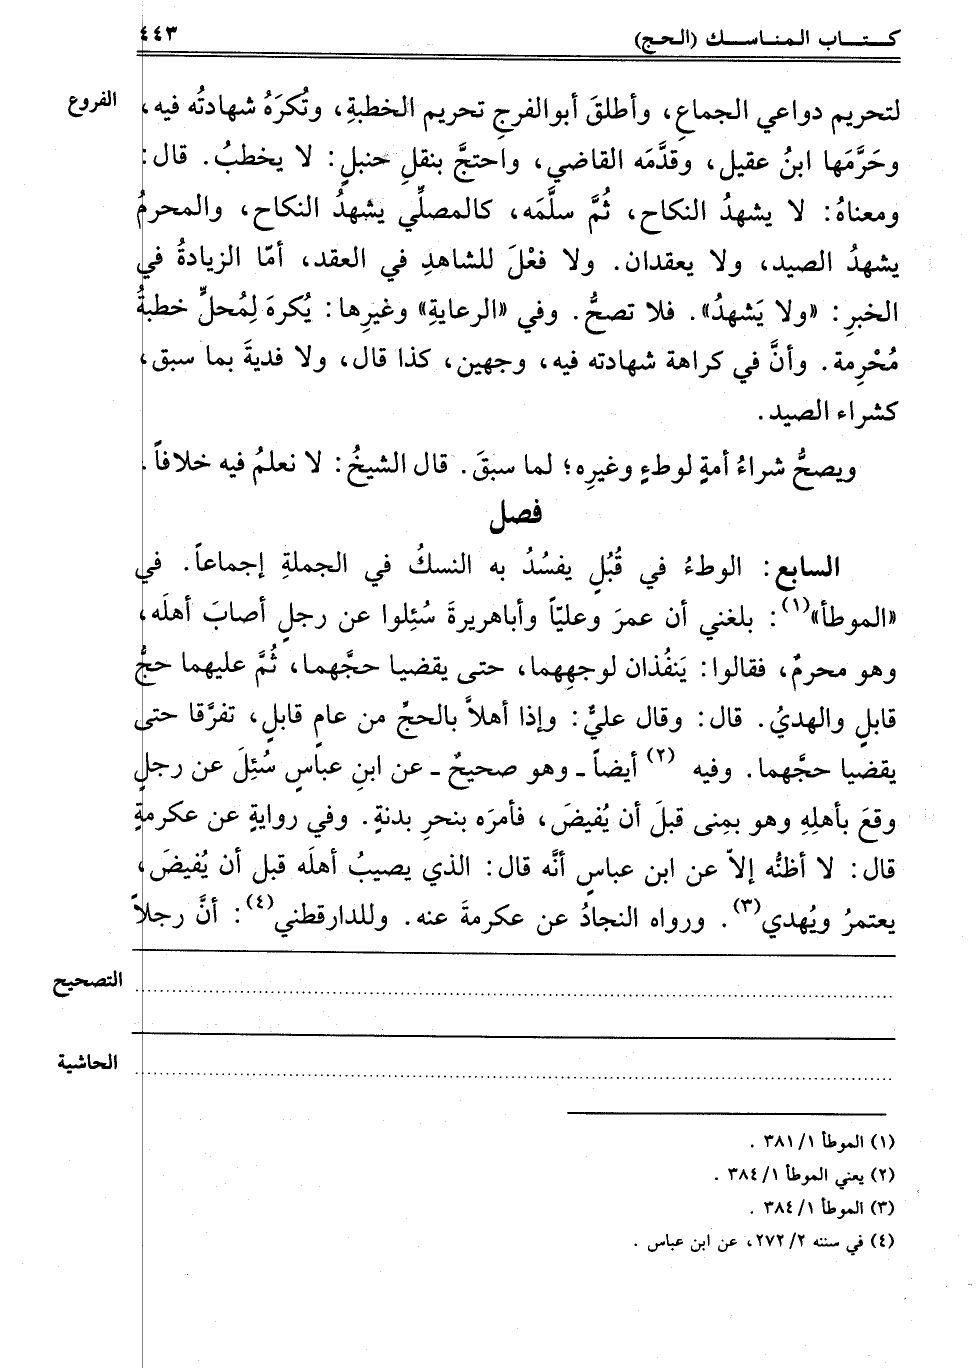 كـتـاب المـنـاسـك (الحج) ٤٤٣
الفروع
لتحريم دواعي الجماعِ، وأطلقَ أبوالفرجِ تحريم الخطبةِ، وتُكرَهُ شهادتُه فيه،
وحَرَّمَها ابنُ عقيل، وقدَّمَه القاضي، واحتجَّ بنقلِ حنبلٍ: لا يخطبُ. قال:
ومعناهُ: لا يشهدُ النكاح، ثُمَّ سلَّمَه، كالمصلِّي يشهدُ النكاح، والمحرمُ
يشهدُ الصيد، ولا يعقدان. ولا فعْلَ للشاهدِ في العقد، أمّا الزيادةُ في
الخبرِ: «ولا يَشهدُ». فلا تصحُّ. وفي «الرعايةِ» وغيرِها: يُكرهَ لِمُحلٍّ خطبةُ
مُحْرِمة. وأنَّ في كراهة شهادته فيه، وجهين، كذا قال، ولا فديةَ بما سبق،
كشراء الصيد.
ويصحُّ شراءُ أمةٍ لوطءٍ وغيرِه؛ لما سبقَ. قال الشيخُ: لا نعلمُ فيه خلافاً.
فصل
السابع: الوطءُ في قُبُلٍ يفسُدُ به النسكُ في الجملةِ إجماعاً. في
«الموطأ»(١): بلغني أن عمرَ وعليّاً وأباهريرةَ سُئِلوا عن رجلٍ أصابَ أهلَه،
وهو محرمٌ، فقالوا: يَنفُذان لوجهِهما، حتى يقضيا حجَّهما، ثُمَّ عليهما حجُّ
قابلٍ والهديُ. قال: وقال عليٌّ: وإذا أهلاَّ بالحجِّ من عامٍ قابلٍ، تفرَّقا حتى
يقضيا حجَّهما. وفيه (٢) أيضاً ـ وهو صحيحٌ ـ عن ابنِ عباسٍ سُئِلَ عن رجلٍ
وقعَ بأهلِهِ وهو بمِنى قبلَ أن يُفيضَ، فأمرَه بنحرِ بدنةٍ. وفي روايةٍ عن عكرمةٍ
قال: لا أظنُّه إلاّ عن ابن عباسٍ أنَّه قال: الذي يصيبُ أهلَه قبل أن يُفيضَ،
يعتمرُ ويُهدي(٣). ورواه النجادُ عن عكرمةَ عنه. وللدارقطني(٤): أنَّ رجلاً
التصحيح
الحاشية
(١) الموطأ ٣٨١/١ .
(٢) يعني الموطأ ٣٨٤/١ .
(٣) الموطأ ٣٨٤/١ .
(٤) في سننه ٢٧٢/٢، عن ابن عباس .